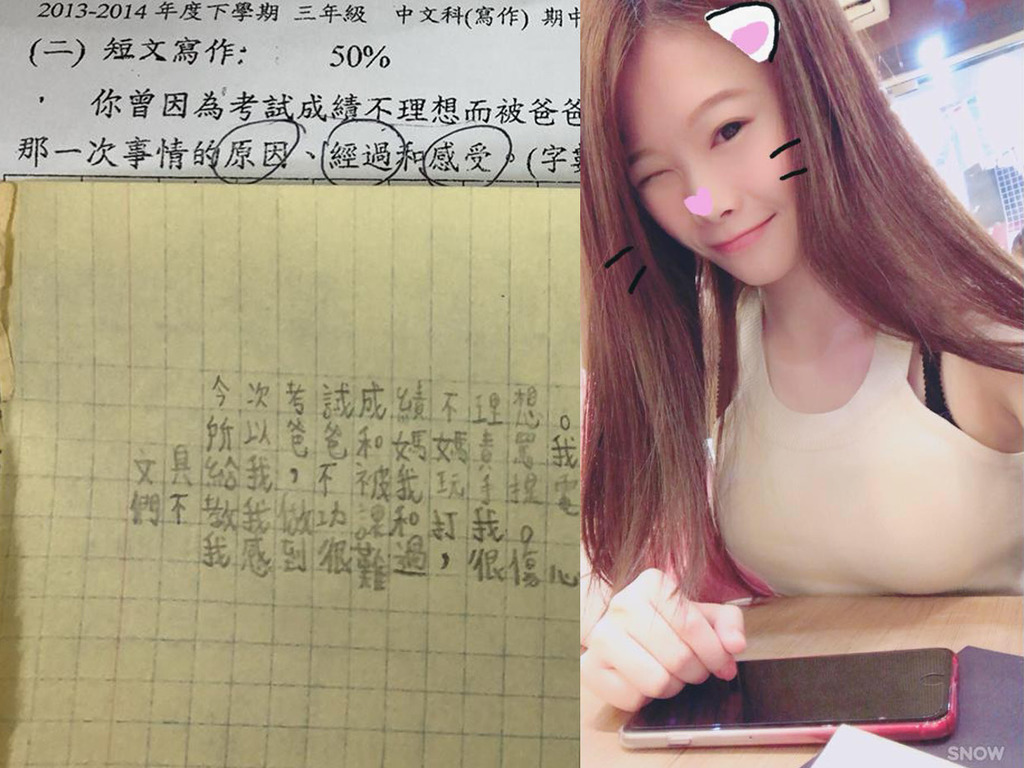 2013-2014 年度下學期 三年級 中文科(寫作) 期中
(二) 短文寫作: 50%
你曾因為考試成績不理想而被爸爸
那一次事情的原因、經過和感受。(字
今次考試成績不理想。
所以爸爸和媽媽責罵我
文具給我，不被我玩手提電
們不教我做功課和打我。
我感到很難過，很傷心
SNOW